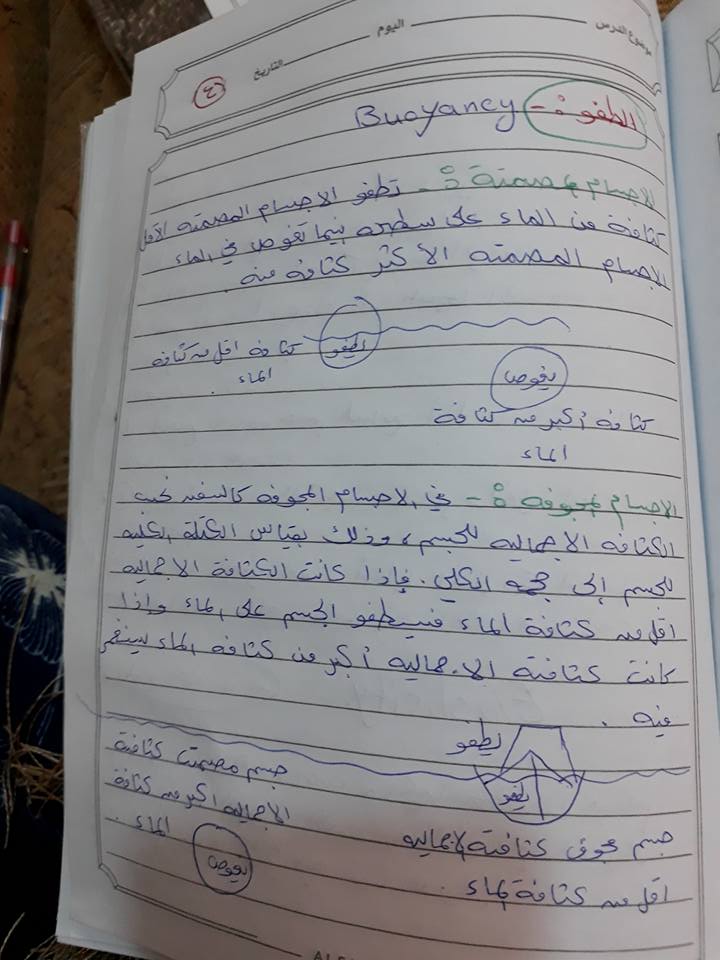 موضوع الدرس اليوم التاريخ
٤
الطفو :- Buoyancy
الاجسام المصمتة :- تطفو الاجسام المصمته الاقل
كثافة من الماء على سطحه بينما تغوص في الماء
الاجسام المصمته الاكثر كثافة منه .
يطفو
كثافة اقل من كثافة
الماء .
يغوص
كثافة أكبر من كثافة
الماء
الاجسام المجوفه :- في الاجسام المجوفة كالسفن نحسب
الكثافه الاجماليه للجسم، وذلك بقياس الكتلة الكليه
للجسم إلى حجمه الكلي . فإذا كانت الكثافة الاجماليه
اقل من كثافة الماء فسيطفو الجسم على الماء وإذا
كانت كثافتة الاجماليه أكبر من كثافه الماء سينغمر
فيه .
يطفو
يطفو
جسم مجوف كثافتة الاجماليه
اقل من كثافة الماء .
جسم مصمت كثافتة
الاجماليه اكبر من كثافة
الماء .
يغوص